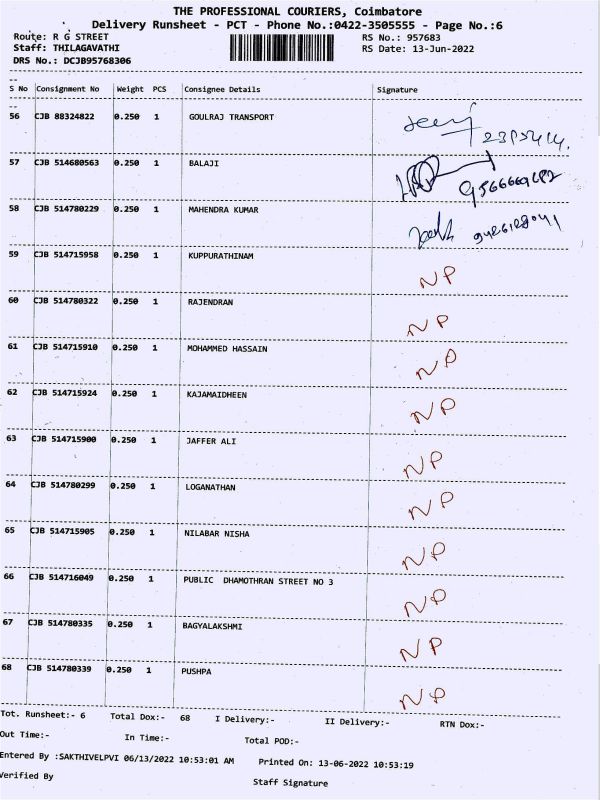 THE PROFESSIONAL COURIERS, Coimbatore
Delivery Runsheet - PCT - Phone No.:0422-3505555 - Page No.:6
Route: R G STREET RS No.: 957683
Staff: THILAGAVATHI RS Date: 13-Jun-2022
DRS No.: DCJB95768306
S No Consignment No Weight PCS Consignee Details Signature
56 CJB 88324822 0.250 1 GOULRAJ TRANSPORT
57 CJB 514680563 0.250 1 BALAJI
58 CJB 514780229 0.250 1 MAHENDRA KUMAR
59 CJB 514715958 0.250 1 KUPPURATHINAM NP
60 CJB 514780322 0.250 1 RAJENDRAN NP
61 CJB 514715910 0.250 1 MOHAMMED HASSAIN NP
62 CJB 514715924 0.250 1 KAJAMAIDHEEN NP
63 CJB 514715900 0.250 1 JAFFER ALI NP
64 CJB 514780299 0.250 1 LOGANATHAN NP
65 CJB 514715905 0.250 1 NILABAR NISHA NP
66 CJB 514716049 0.250 1 PUBLIC DHAMOTHRAN STREET NO 3 NP
67 CJB 514780335 0.250 1 BAGYALAKSHMI NP
68 CJB 514780339 0.250 1 PUSHPA NP
Tot. Runsheet:- 6 Total Dox:- 68 I Delivery:- II Delivery:- RTN Dox:-
Out Time:- In Time:- Total POD:-
Entered By :SAKTHIVELPVI 06/13/2022 10:53:01 AM Printed On: 13-06-2022 10:53:19
Verified By Staff Signature